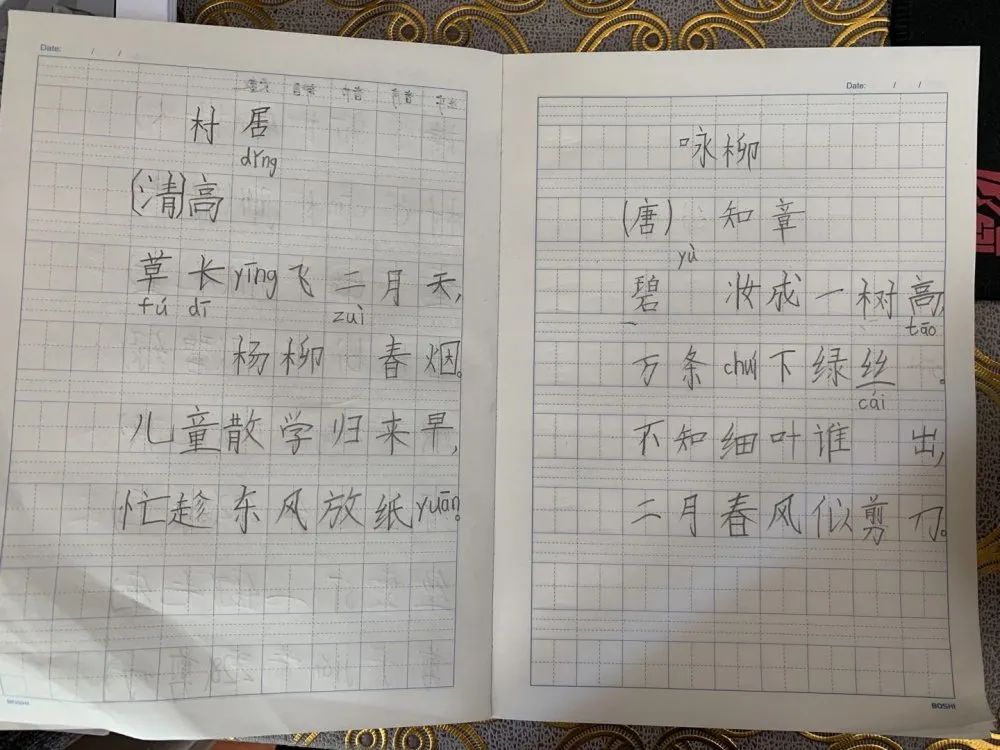 Date: / /
村居
dǐng
(清)高
草长yīng飞二月天,
fú dī zuì
杨柳 春烟。
儿童散学归来早,
忙趁东风放纸yuān。
Date: / /
咏柳
(唐) 知章
yù
碧 妆成一树高,
tāo
万条chuí下绿丝 。
cái
不知细叶谁 出,
二月春风似剪刀。
BOSHI